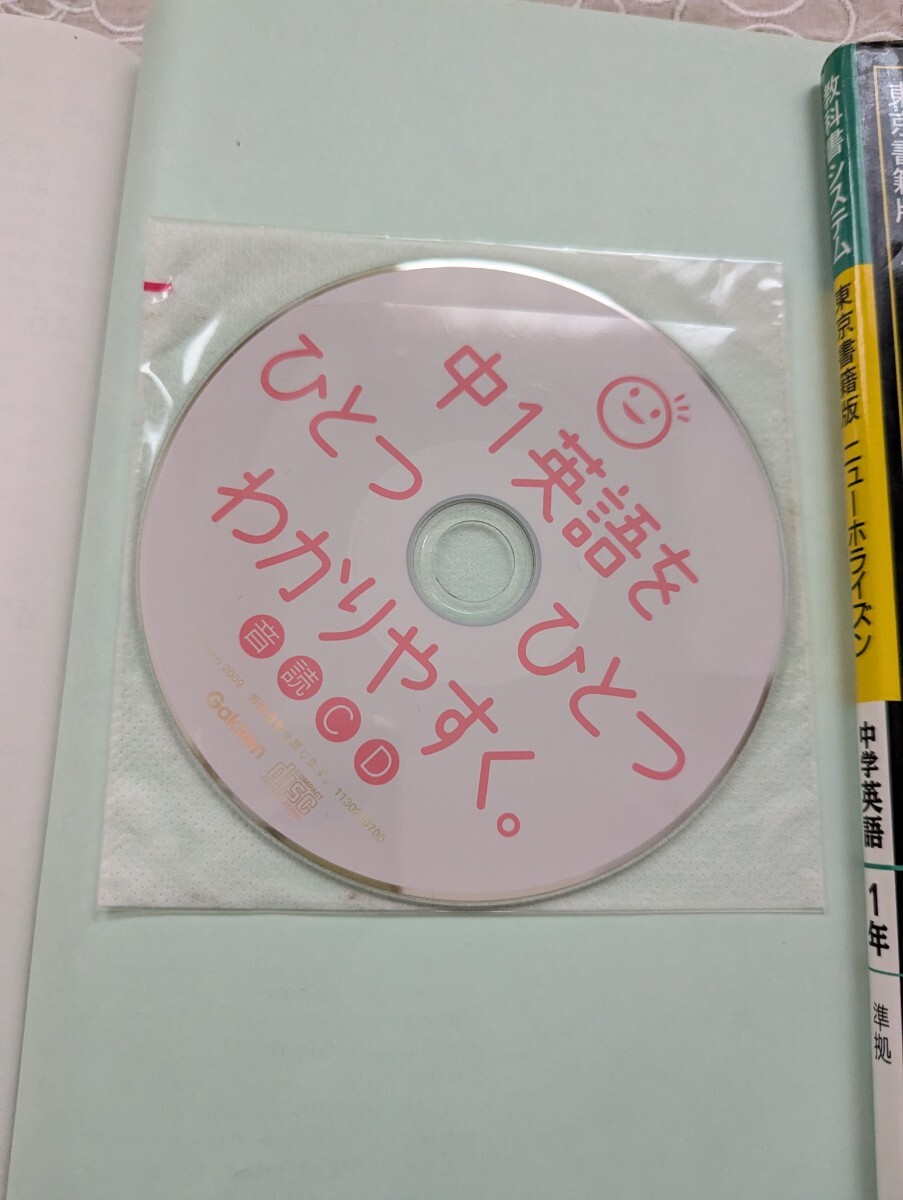 中1英語を
ひとつ
ひとつ
わかりやすく。
音読CD
2009
Gakken
COMPACT
disc
教科書システム
東京書籍版 ニューホライズン
中学英語
1年
準拠
東京書籍版